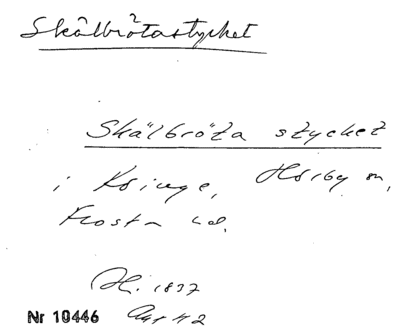 Skälbrötastycket
Skälbröta stycket
i Ksinge, Hörby sn,
Frosta hd.
H. 1837
Nr 10446 Akt nr 2